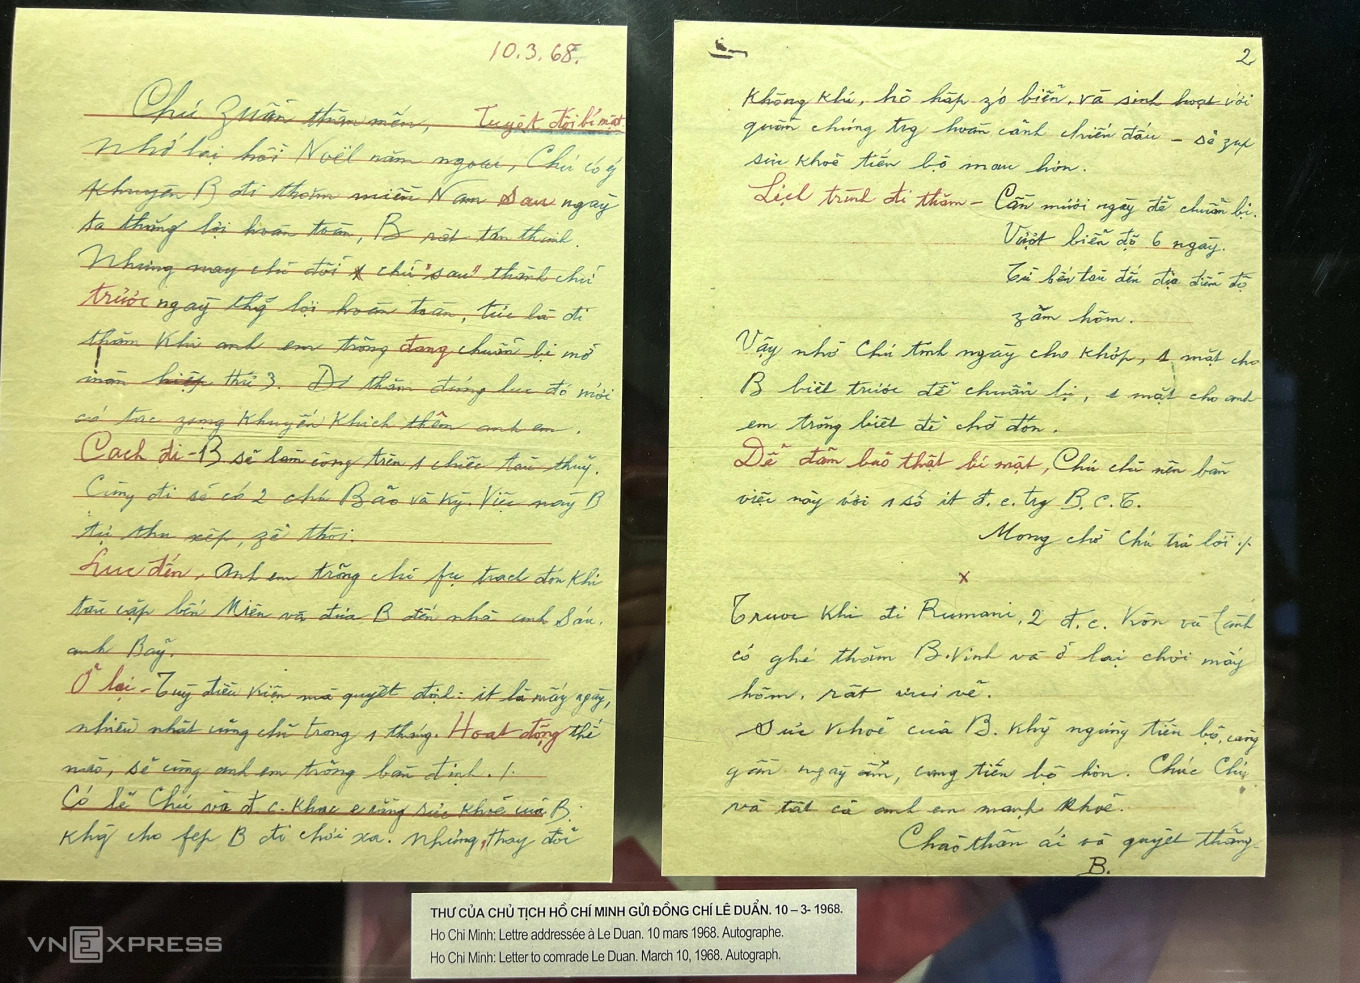 10.3.68.
Chú Zuẩn thân mến, Tuyệt đối bí mật
Nhớ lại hồi Noël năm ngoái, Chú có ý
khuyên B đi thăm miền Nam sau ngày
ta thắng lợi hoàn toàn, B rất tán thành.
Nhưng nay chỉ đổi chữ "sau" thành chữ
trước ngày thắng lợi hoàn toàn, tức là đi
thăm khi anh em trong đang chuẩn bị mở
màn hiệp thứ 3. Đi thăm đúng lúc đó mới
có tác zụng khuyến khích thêm anh em.
Cách đi - B sẽ làm công trên 1 chiếc tàu thuỷ.
Cùng đi sẽ có 2 chú Bảo và Kỳ. Việc này B
tự thu xếp, zễ thôi.
Lúc đến, anh em trỏng chỉ fụ trách đón khi
tàu cập bến Miên và đưa B đến nhà anh Sáu,
anh Bảy.
Ở lại - Tuỳ điều kiện mà quyết định: ít là mấy ngày,
nhiều nhất cũng chỉ trong 1 tháng. Hoạt động thế
nào, sẽ cùng anh em trỏng bàn định./.
Có lẽ Chú và đ.c. khác e rằng sức khoẻ của B.
khg cho fép B đi chơi xa. Nhưng, thay đổi
2
không khí, hô hấp zó biển, và sinh hoạt với
quần chúng trg hoàn cảnh chiến đấu – sẽ zup
sức khoẻ tiến bộ mau hơn.
Lịch trình đi thăm – Cần mười ngày để chuẩn bị.
Vượt biển độ 6 ngày.
Từ bến tàu đến địa điểm độ
zăm hôm.
Vậy nhờ Chú tính ngày cho khớp, 1 mặt cho
B biết trước để chuẩn bị, 1 mặt cho anh
em trỏng biết để chờ đón.
Để đảm bảo thật bí mật, Chú chỉ nên bàn
việc này với 1 số ít đ.c. trg B.C.T.
Mong chờ Chú trả lời./.
x
Trước khi đi Rumani, 2 đ.c. Kôn và
có ghé thăm B. và ở lại chơi mấy
hôm, rất vui vẻ.
Sức khoẻ của B. khg ngừng tiến bộ, càng
gần ngày ấm, càng tiến bộ hơn. Chúc Chú
và tất cả anh em mạnh khoẻ.
Chào thân ái và quyết thắng
B.
THƯ CỦA CHỦ TỊCH HỒ CHÍ MINH GỬI ĐỒNG CHÍ LÊ DUẨN. 10 – 3- 1968.
Ho Chi Minh: Lettre addressée à Le Duan. 10 mars 1968. Autographe.
Ho Chi Minh: Letter to comrade Le Duan. March 10, 1968. Autograph.
VNEXPRESS